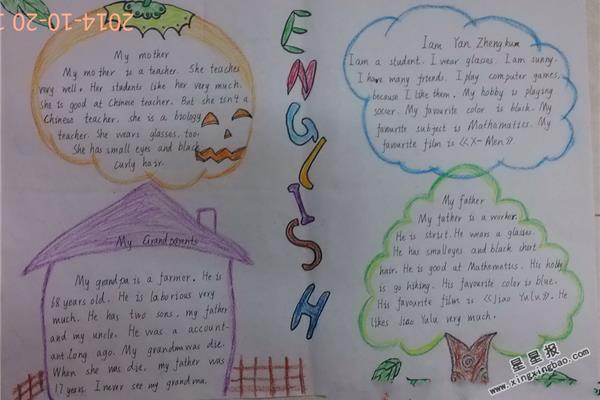 2014-10-20
My mother
My mother is a teacher. She teaches
very well. Her students like her very much.
She is good at Chinese teacher. But she isn't a
Chinese teacher, she is a biology
teacher. She wears glasses, too.
She has small eyes and black
curly hair.
ENGLISH
Iam Yan Zheng kun
Iam a student. I wear glasses. Iam sunny.
I have many friends. I play computer games,
because I like them. My hobby is playing
soccer. My favourite color is black. My
favourite subject is Mathematics. My
favourite film is 《X-Men》.
My Grandparents
My grandpa is a farmer. He is
68 years old. He is laborious very
much. He has two sons, my father
and my uncle. He was a account-
ant. Long ago. My grandma was die.
When she was die, my father was
17 years. I never see my grandma.
My father
My father is a worker.
He is strict. He wears a glasses.
He has smalleyes and black short
hair. He is good at Mathematics. His hobby
is go hiking. His favourite color is blue.
His favourite film is 《Jiao Yulu》. He
likes Jiao Yulu very much.
星星报
www.xingxingbao.com